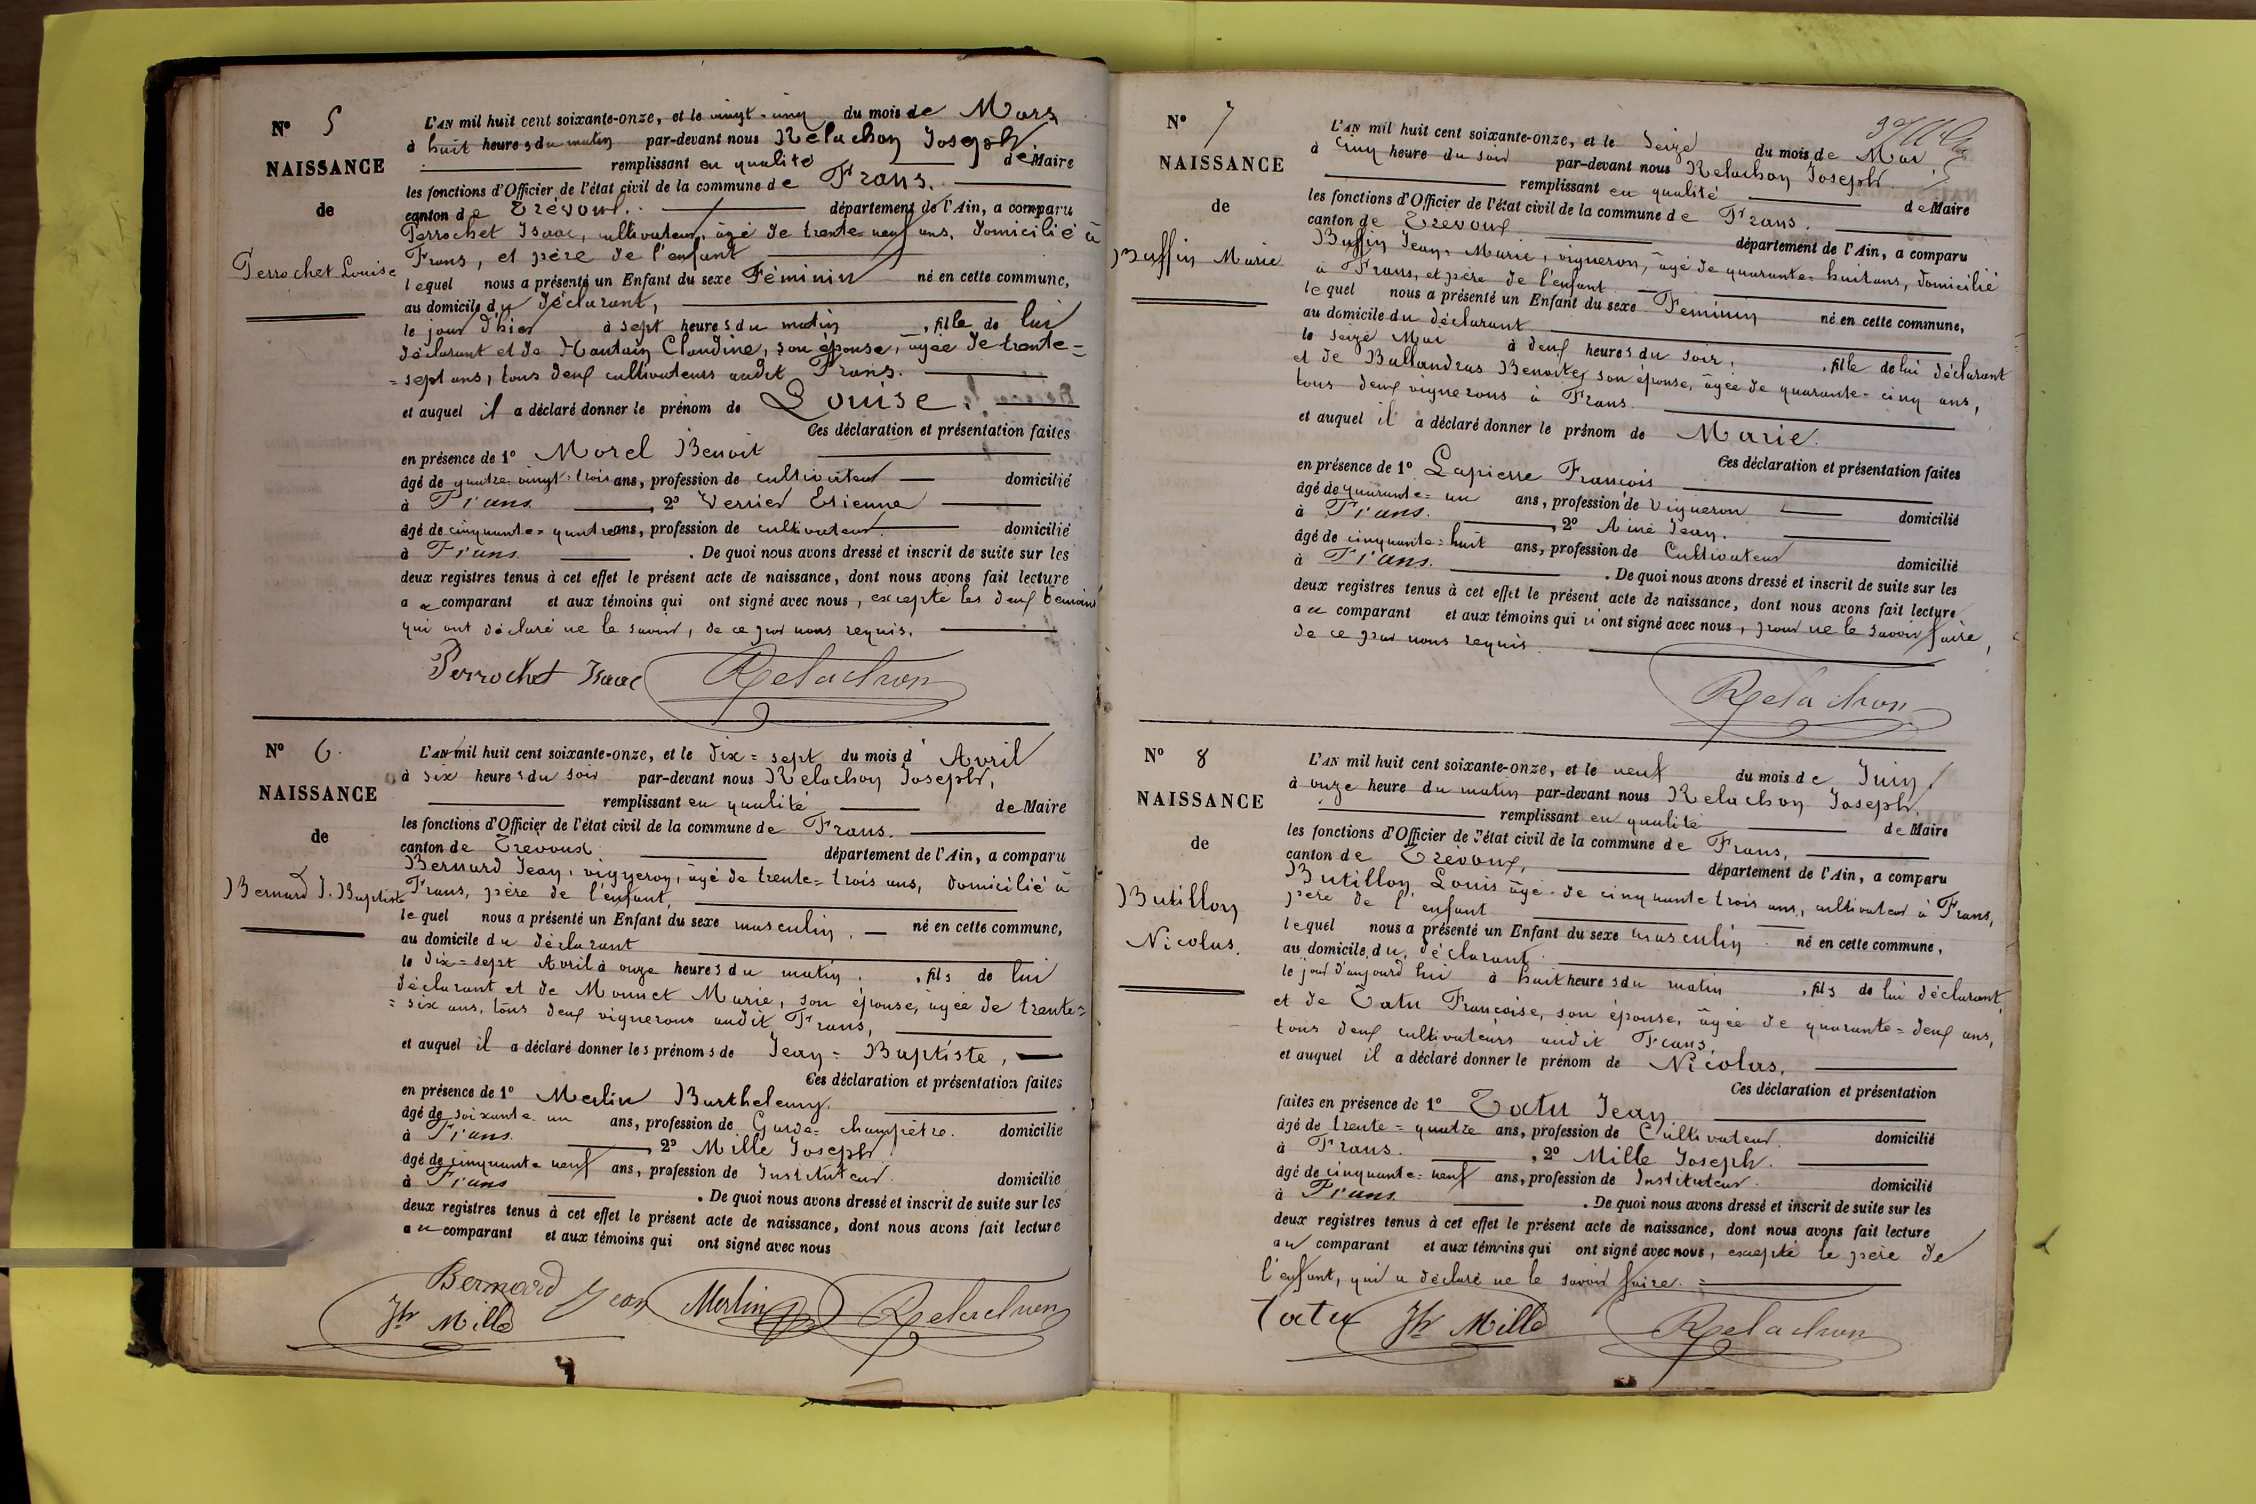 N° 5
NAISSANCE
de
Perrochet Louise
L'AN mil huit cent soixante-onze, et le vingt-cinq du mois de Mars
à huit heures du matin par-devant nous Relachon Joseph
remplissant en qualité de Maire
les fonctions d'Officier de l'état civil de la commune de Frans.
canton de Trévoux. département de l'Ain, a comparu
Perrochet Isaac, cultivateur, âgé de trente-neuf ans, domicilié à
Frans, et père de l'enfant
lequel nous a présenté un Enfant du sexe Féminin né en cette commune,
au domicile du déclarant,
le jour d'hier à sept heures du matin, fille de lui
déclarant et de Mantain Claudine, son épouse, âgée de trente=
=sept ans, tous deux cultivateurs audit Frans.
et auquel il a déclaré donner le prénom de Louise.
Ces déclaration et présentation faites
en présence de 1° Morel Benoit
âgé de quatre-vingt-trois ans, profession de cultivateur domicilié
à Frans, 2° Verrier Etienne
âgé de cinquante=quatre ans, profession de cultivateur domicilié
à Frans. De quoi nous avons dressé et inscrit de suite sur les
deux registres tenus à cet effet le présent acte de naissance, dont nous avons fait lecture
au comparant et aux témoins qui ont signé avec nous, excepté les deux témoins
qui ont déclaré ne le savoir, de ce par nous requis.
Perrochet Isaac Relachon
N° 6.
NAISSANCE
de
Bernard J. Baptiste
L'AN mil huit cent soixante-onze, et le dix=sept du mois d'Avril
à six heures du soir par-devant nous Relachon Joseph,
remplissant en qualité de Maire
les fonctions d'Officier de l'état civil de la commune de Frans.
canton de Trevoux département de l'Ain, a comparu
Bernard Jean, vigneron, âgé de trente=trois ans, domicilié à
Frans, père de l'enfant,
lequel nous a présenté un Enfant du sexe masculin, né en cette commune,
au domicile du déclarant
le dix=sept Avril à onze heures du matin, fils de lui
déclarant et de Monnet Marie, son épouse, âgée de trente=
=six ans, tous deux vignerons audit Frans,
et auquel il a déclaré donner les prénoms de Jean=Baptiste,
Ces déclaration et présentation faites
en présence de 1° Merlin Barthelemy.
âgé de soixante un ans, profession de Garde=champêtre. domicilié
à Frans. 2° Mille Joseph
âgé de cinquante neuf ans, profession de Instituteur domicilié
à Frans. De quoi nous avons dressé et inscrit de suite sur les
deux registres tenus à cet effet le présent acte de naissance, dont nous avons fait lecture
au comparant et aux témoins qui ont signé avec nous
Bernard Jean Merlin Relachon
Jh Mille
N° 7
NAISSANCE
de
Buffin Marie
L'AN mil huit cent soixante-onze, et le Seize du mois de Mai,
à cinq heure du soir par-devant nous Relachon Joseph.
remplissant en qualité de Maire
les fonctions d'Officier de l'état civil de la commune de Frans.
canton de Trévoux département de l'Ain, a comparu
Buffin Jean-Marie, vigneron, âgé de quarante-huit ans, domicilié
à Frans, et père de l'enfant
lequel nous a présenté un Enfant du sexe Feminin né en cette commune,
au domicile du déclarant
le seize Mai à deux heures du soir, fille de lui déclarant
et de Ballandras Benoite, son épouse, âgée de quarante-cinq ans,
tous deux vignerons à Frans.
et auquel il a déclaré donner le prénom de Marie.
Ces déclaration et présentation faites
en présence de 1° Lapierre François
âgé de quarante=un ans, profession de Vigneron domicilié
à Frans. 2° Ainé Jean.
âgé de cinquante=huit ans, profession de Cultivateur domicilié
à Frans. De quoi nous avons dressé et inscrit de suite sur les
deux registres tenus à cet effet le présent acte de naissance, dont nous avons fait lecture
au comparant et aux témoins qui n'ont signé avec nous, pour ne le savoir faire,
de ce par nous requis.
Relachon
N° 8
NAISSANCE
de
Butillon
Nicolas.
L'AN mil huit cent soixante-onze, et le neuf du mois de Juin,
à onze heure du matin par-devant nous Relachon Joseph.
remplissant en qualité de Maire
les fonctions d'Officier de l'état civil de la commune de Frans.
canton de Trévoux, département de l'Ain, a comparu
Butillon Louis âgé de cinquante trois ans, cultivateur à Frans,
père de l'enfant
lequel nous a présenté un Enfant du sexe masculin né en cette commune,
au domicile du déclarant.
le jour d'aujourd'hui à huit heures du matin, fils de lui déclarant,
et de Tatu Françoise, son épouse, âgée de quarante=deux ans,
tous deux cultivateurs audit Frans,
et auquel il a déclaré donner le prénom de Nicolas,
Ces déclaration et présentation
faites en présence de 1° Tatu Jean
âgé de trente=quatre ans, profession de Cultivateur. domicilié
à Frans., 2° Mille Joseph.
âgé de cinquante=neuf ans, profession de Instituteur. domicilié
à Frans. De quoi nous avons dressé et inscrit de suite sur les
deux registres tenus à cet effet le présent acte de naissance, dont nous avons fait lecture
au comparant et aux témoins qui ont signé avec nous, excepté le père de
l'enfant, qui a déclaré ne le savoir faire.
Tatu Jh Mille Relachon